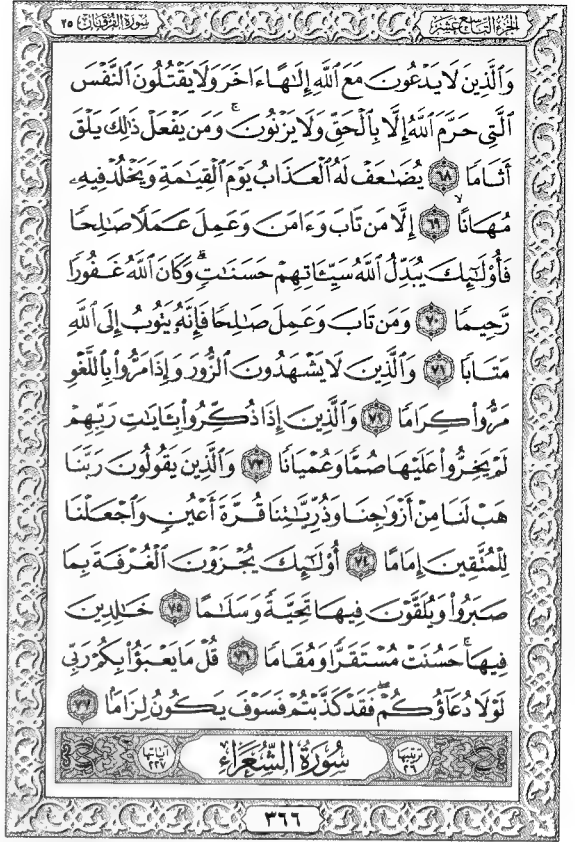 الجزء التاسع عشر
سورة الفرقان ٢٥
وَالَّذِينَ لَا يَدْعُونَ مَعَ اللَّهِ إِلَٰهًا ءَاخَرَ وَلَا يَقْتُلُونَ النَّفْسَ
الَّتِي حَرَّمَ اللَّهُ إِلَّا بِالْحَقِّ وَلَا يَزْنُونَ ۚ وَمَن يَفْعَلْ ذَٰلِكَ يَلْقَ
أَثَامًا ٦٨ يُضَٰعَفْ لَهُ الْعَذَابُ يَوْمَ الْقِيَٰمَةِ وَيَخْلُدْ فِيهِۦ
مُهَانًا ٦٩ إِلَّا مَن تَابَ وَءَامَنَ وَعَمِلَ عَمَلًا صَٰلِحًا
فَأُوْلَٰٓئِكَ يُبَدِّلُ اللَّهُ سَيِّـَٔاتِهِمْ حَسَنَٰتٍ ۗ وَكَانَ اللَّهُ غَفُورًا
رَّحِيمًا ٧٠ وَمَن تَابَ وَعَمِلَ صَٰلِحًا فَإِنَّهُۥ يَتُوبُ إِلَى اللَّهِ
مَتَابًا ٧١ وَالَّذِينَ لَا يَشْهَدُونَ الزُّورَ وَإِذَا مَرُّواْ بِاللَّغْوِ
مَرُّواْ كِرَامًا ٧٢ وَالَّذِينَ إِذَا ذُكِّرُواْ بِـَٔايَٰتِ رَبِّهِمْ
لَمْ يَخِرُّواْ عَلَيْهَا صُمًّا وَعُمْيَانًا ٧٣ وَالَّذِينَ يَقُولُونَ رَبَّنَا
هَبْ لَنَا مِنْ أَزْوَٰجِنَا وَذُرِّيَّٰتِنَا قُرَّةَ أَعْيُنٍ وَاجْعَلْنَا
لِلْمُتَّقِينَ إِمَامًا ٧٤ أُوْلَٰٓئِكَ يُجْزَوْنَ الْغُرْفَةَ بِمَا
صَبَرُواْ وَيُلَقَّوْنَ فِيهَا تَحِيَّةً وَسَلَٰمًا ٧٥ خَٰلِدِينَ
فِيهَا ۚ حَسُنَتْ مُسْتَقَرًّا وَمُقَامًا ٧٦ قُلْ مَا يَعْبَؤُاْ بِكُمْ رَبِّي
لَوْلَا دُعَآؤُكُمْ ۖ فَقَدْ كَذَّبْتُمْ فَسَوْفَ يَكُونُ لِزَامًا ٧٧
ترتيبها ٢٦
سُورَةُ الشُّعَرَاءِ
آياتها ٢٢٧
٣٦٦